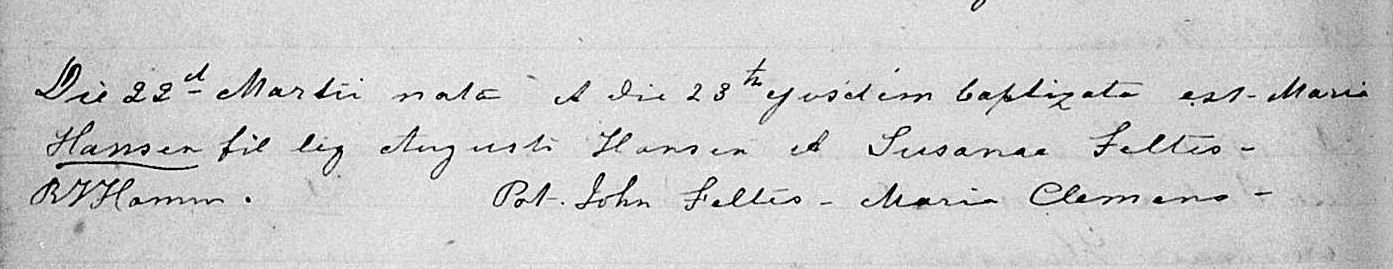 Die 22d Martii nata et die 28th ejusdem baptizata est Maria
Hansen fil leg Augusti Hansen et Susanae Feltes -
Pat. John Feltes - Maria Clemens -